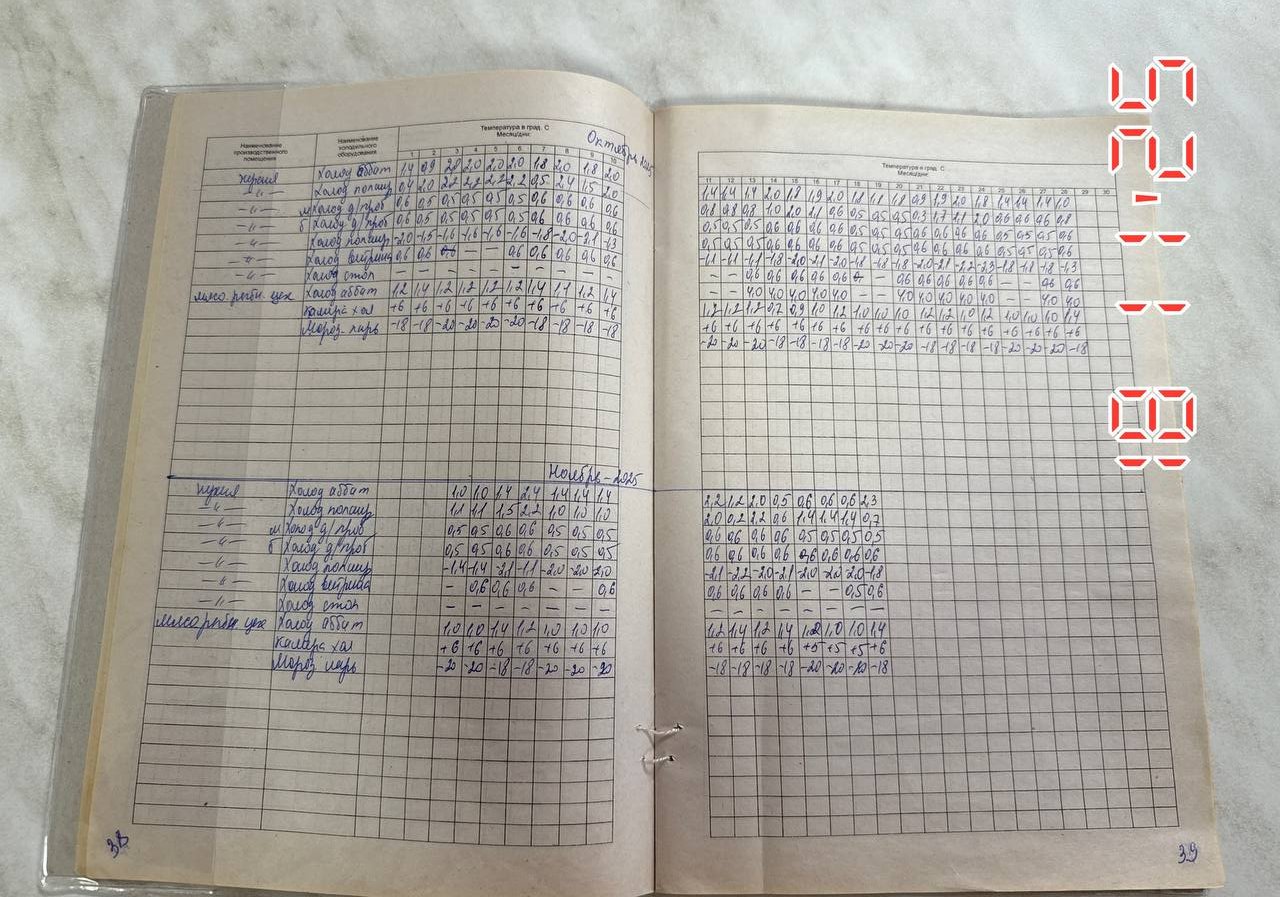 Наименование производственного помещения
Наименование холодильного оборудования
Температура в град. С
Месяц/дни:
Октябрь 2025
1 2 3 4 5 6 7 8 9 10
Холод аббат 1,4 0,9 2,0 2,0 2,0 1,8 2,0 1,8 2,0
-"- Холод 0,4 2,0 2,2 2,2 2,2 2,2 0,5 2,4 1,5 2,0
-"- м Холод д/проб 0,6 0,5 0,5 0,5 0,5 0,5 0,6 0,6 0,6 0,6
-"- б Холод д/проб 0,6 0,5 0,5 0,5 0,5 0,5 0,6 0,6 0,6 0,6
-"- Холод -2,0 -1,5 -1,6 -1,6 -1,6 -1,6 -1,8 -2,0 -2,1 -1,3
-"- Холод витрина 0,6 0,6 — — 0,6 0,6 0,6 0,6 0,6
-"- Холод стол — — — — — — — — — —
мясо рыбн. цех Холод аббат 1,2 1,4 1,2 1,2 1,2 1,2 1,4 1,4 1,2 1,4
Камера хол +6 +6 +6 +6 +6 +6 +6 +6 +6 +6
Мороз. ларь -18 -18 -20 -20 -20 -20 -18 -18 -18 -18
Ноябрь - 2025
Холод аббат 1,0 1,0 1,4 2,4 1,4 1,4 1,4
-"- Холод 1,1 1,1 1,5 2,2 1,0 1,0 1,0
-"- м Холод д/проб 0,5 0,5 0,6 0,6 0,5 0,5 0,5
-"- б Холод д/проб 0,5 0,5 0,6 0,6 0,5 0,5 0,5
-"- Холод -1,4 -1,4 -2,1 -1,1 -2,0 -2,0 -2,0
-"- Холод витрина — 0,6 0,6 0,6 — — 0,6
-"- Холод стол — — — — — — —
мясо рыбн цех Холод аббат 1,0 1,0 1,4 1,2 1,0 1,0 1,0
Камера хол +6 +6 +6 +6 +6 +6 +6
Мороз ларь -20 -20 -18 -18 -20 -20 -20
38
Температура в град. С
Месяц/дни:
11 12 13 14 15 16 17 18 19 20 21 22 23 24 25 26 27 28 29 30
1,4 1,4 1,4 2,0 1,8 1,9 2,0 1,1 1,1 1,8 0,9 1,9 2,0 1,8 1,4 1,4 1,4 1,0
0,8 0,8 0,8 1,0 2,0 2,1 0,6 0,5 0,5 0,5 0,3 1,7 2,1 2,0 0,6 0,6 0,6 0,8
0,5 0,5 0,5 0,6 0,6 0,6 0,6 0,5 0,5 0,5 0,6 0,6 0,6 0,6 0,5 0,5 0,5 0,6
0,5 0,5 0,5 0,6 0,6 0,6 0,6 0,5 0,5 0,5 0,6 0,6 0,6 0,6 0,5 0,5 0,5 0,6
-1,1 -1,1 -1,1 -1,8 -2,0 -2,1 -2,0 -1,8 -1,8 -1,8 -2,0 -2,1 -2,2 -2,3 -1,8 -1,8 -1,8 -1,3
— — 0,6 0,6 0,6 0,6 0,6 — — 0,6 0,6 0,6 0,6 0,6 — — 0,6 0,6
— — 4,0 4,0 4,0 4,0 4,0 — — 4,0 4,0 4,0 4,0 4,0 — — 4,0 4,0
1,2 1,2 1,2 0,7 0,9 1,0 1,2 1,0 1,0 1,0 1,2 1,2 1,0 1,2 1,0 1,0 1,0 1,4
+6 +6 +6 +6 +6 +6 +6 +6 +6 +6 +6 +6 +6 +6 +6 +6 +6 +6
-20 -20 -20 -18 -18 -18 -18 -20 -20 -20 -18 -18 -18 -18 -20 -20 -20 -18
2,2 1,2 2,0 0,5 0,6 0,6 0,6 2,3
2,0 0,2 2,2 0,6 1,4 1,4 1,4 0,7
0,6 0,6 0,6 0,6 0,5 0,5 0,5 0,5
0,6 0,6 0,6 0,6 0,6 0,6 0,6 0,6
-2,1 -2,2 -2,0 -2,1 -2,0 -2,0 -2,0 -1,8
0,6 0,6 0,6 0,6 — — 0,5 0,6
— — — — — — — —
1,2 1,4 1,2 1,4 1,0 1,0 1,4
+6 +6 +6 +6 +5 +5 +5 +6
-18 -18 -18 -18 -20 -20 -20 -18
39